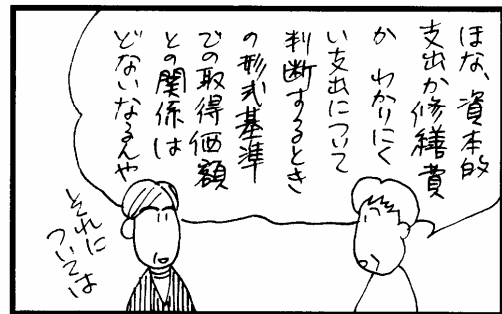 ほな、資本的
支出か修繕費
か わかりにく
い支出について
判断するとき
の形式基準
での取得価額
との関係は
どないなるんや
それに
ついては